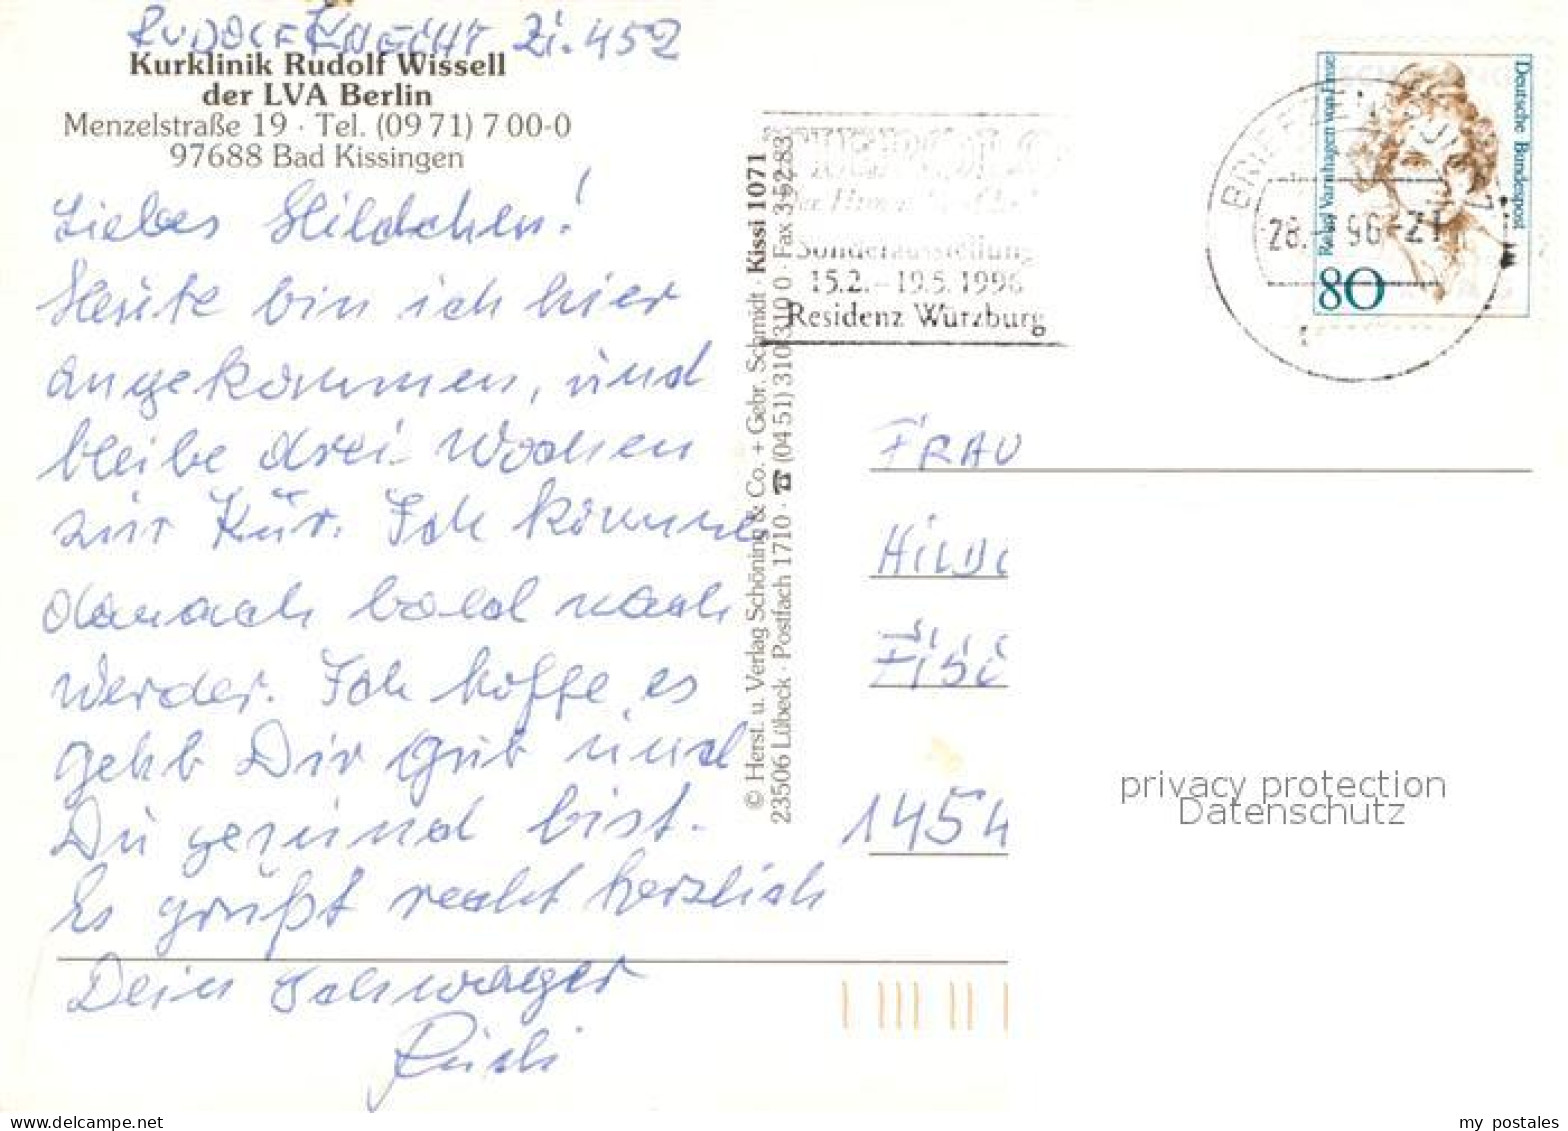 RUDOLF KNECHT Zi. 452
Kurklinik Rudolf Wissell
der LVA Berlin
Menzelstraße 19 · Tel. (09 71) 7 00-0
97688 Bad Kissingen
Liebes Hildchen!
Heute bin ich hier
angekommen, und
bleibe drei Wochen
zur Kur. Ich komme
danach bald nach
Werder. Ich hoffe, es
geht Dir gut und
Du gesund bist.
Es grüßt recht herzlich
Dein Schwager
Rudi
© Herst. u. Verlag Schöning & Co. + Gebr. Schmidt · Kissi 1071
23506 Lübeck · Postfach 1710 · ☎ (04 51) 310 310 0 · Fax 3 62 83
TIEPOLO
Sonderausstellung
15.2.–19.5.1996
Residenz Würzburg
BRIEFZENTRUM
28. 96-21
Deutsche Bundespost
Rahel Varnhagen von Ense
80
FRAU
HILD
1454
privacy protection
Datenschutz
my postales